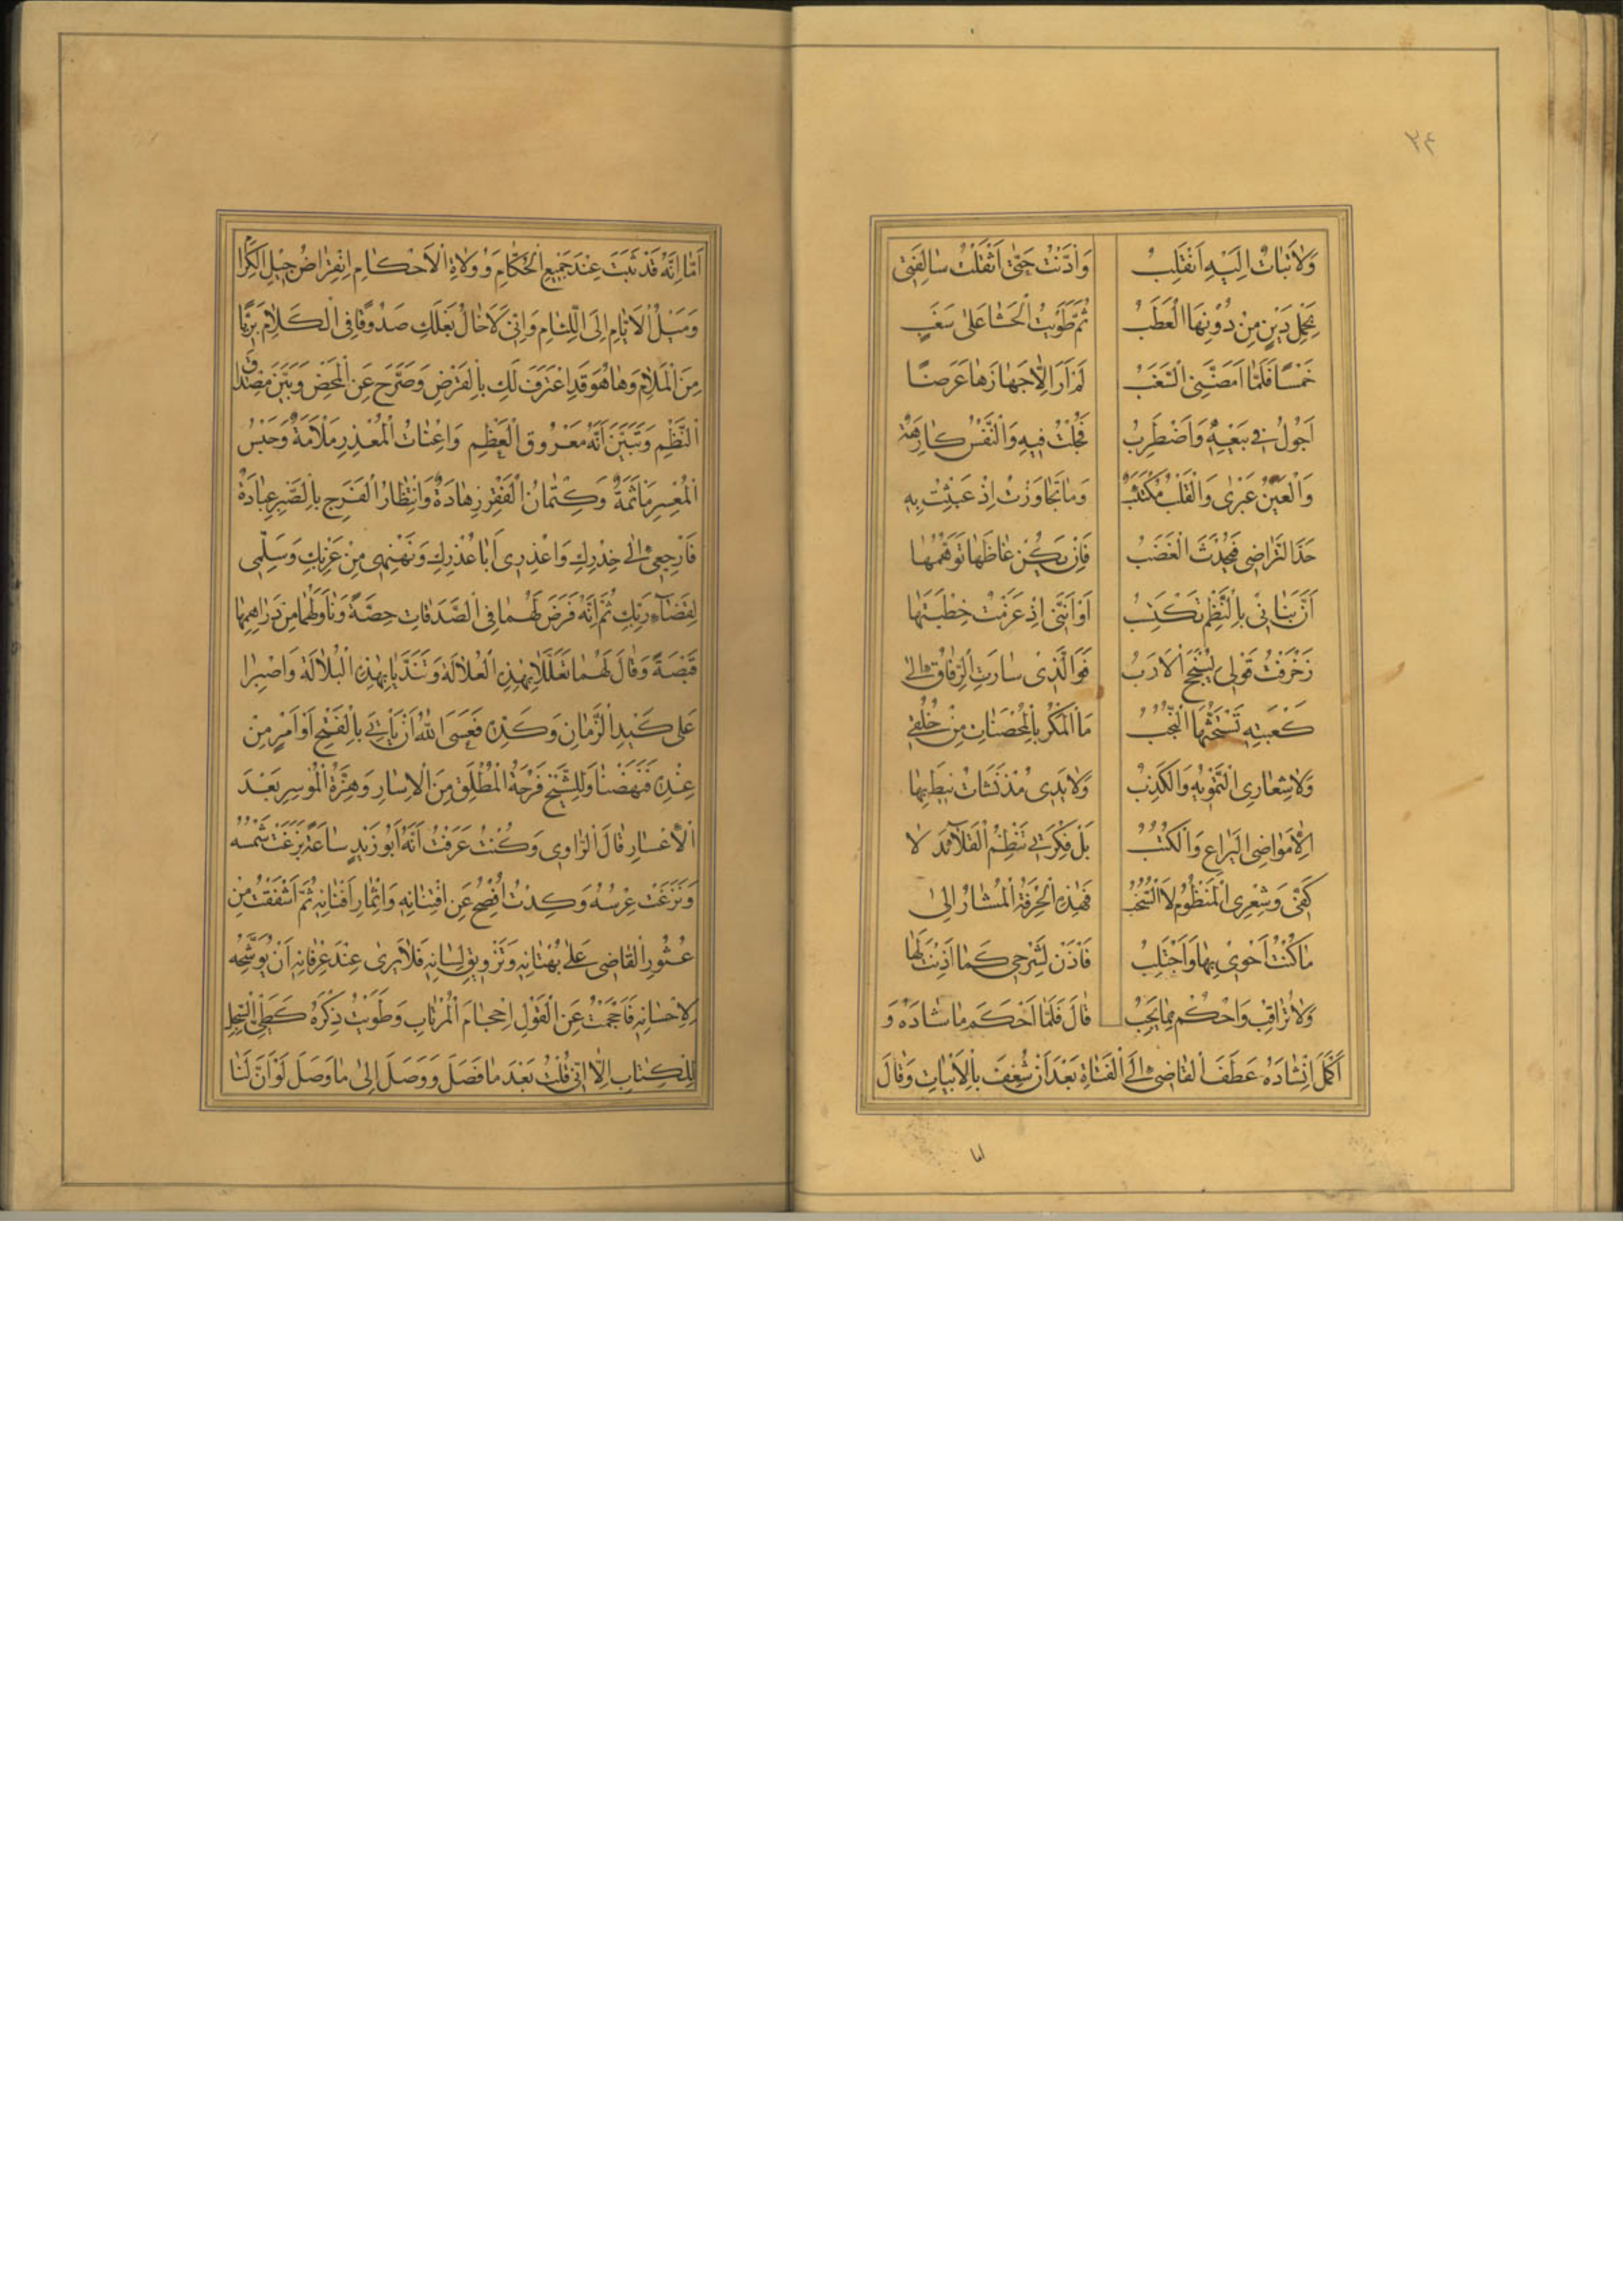 ٣٤
وَلَا بَتَاتٌ اِلَيْهِ اَنْقَلِبُ وَادَّنْتُ حَتّٰى اَثْقَلْتُ سَالِفَتِى
بِحَمْلِ دَيْنٍ مِنْ دُوْنِهَا الْعَطَبُ ثُمَّ طَوَيْتُ الْحَشَا عَلٰى سَغَبٍ
خَمْسًا فَلَمَّا اَمَضَّنِى السَّغَبُ لَمْ اَرَ اِلَّا جَهَازَهَا عَرَضًا
اَجُوْلُ فِى بَيْعِهٖ وَاَضْطَرِبُ فَجُلْتُ فِيْهِ وَالنَّفْسُ كَارِهَةٌ
وَالْعَيْنُ عَبْرٰى وَالْقَلْبُ مُكْتَئِبٌ وَمَا تَجَاوَزْتُ اِذْ عَبَثْتُ بِهٖ
حَدَّ التَّرَاضِى فَيَحْدُثَ الْغَضَبُ فَاِنْ يَكُنْ غَاظَهَا تَوَهُّمُهَا
اَنَّ بَنَانِى بِالنَّظْمِ تَكْتَسِبُ اَوْ اَنَّنِى اِذْ عَزَمْتُ خِطْبَتَهَا
زَخْرَفْتُ قَوْلِى لِيَنْجَحَ الْاَرَبُ فَوَالَّذِىْ سَارَتِ الرِّفَاقُ اِلٰى
كَعْبَتِهٖ تَسْتَحِثُّهَا النُّجُبُ مَا الْمَكْرُ بِالْمُحْصَنَاتِ مِنْ خُلُقِى
وَلَا شِعَارِى التَّمْوِيْهُ وَالْكَذِبُ وَلَا يَدِى مُذْ نَشَاَتْ نِيْطَ بِهَا
اِلَّا مَوَاضِى الْيَرَاعِ وَالْكُتُبُ بَلْ فِكْرَتِى تَنْظِمُ الْقَلَآئِدَ لَا
كَفِّى وَشِعْرِى الْمَنْظُوْمُ لَا السُّخُبُ فَهٰذِهِ الْحِرْفَةُ الْمُشَارُ اِلٰى
مَا كُنْتُ اَحْوِىْ بِهَا وَاَجْتَلِبُ فَاْذَنْ لِشَرْحِى كَمَا اَذِنْتَ لَهَا
وَلَا تُرَاقِبْ وَاحْكُمْ بِمَا يَجِبُ قَالَ فَلَمَّا اَحْكَمَ مَا شَادَهُ وَ
اَكْمَلَ اِنْشَادَهُ عَطَفَ الْقَاضِى اِلَى الْفَتَاةِ بَعْدَ اَنْ شُغِفَ بِالْاَبْيَاتِ وَقَالَ
اما
اَمَّا اِنَّهُ قَدْ ثَبَتَ عِنْدَ جَمِيْعِ الْحُكَّامِ وَوُلَاةِ الْاَحْكَامِ اِنْقِرَاضُ جِيْلِ الْكِرَامِ
وَمَيْلُ الْاَيَّامِ اِلَى اللِّئَامِ وَاِنِّى لَاَخَالُ بَعْلَكِ صَدُوْقًا فِى الْكَلَامِ بَرِيًّا
مِنَ الْمَلَامِ وَهَا هُوَ قَدِ اعْتَرَفَ لَكِ بِالْقَرْضِ وَصَرَّحَ عَنِ الْمَحْضِ وَبَيَّنَ مِصْدَاقَ
النَّظْمِ وَتَبَيَّنَ اَنَّهُ مَعْرُوْقُ الْعَظْمِ وَاِعْنَاتُ الْمُعْذِرِ مَلْاَمَةٌ وَحَبْسُ
الْمُعْسِرِ مَاْثَمَةٌ وَكِتْمَانُ الْفَقْرِ زَهَادَةٌ وَانْتِظَارُ الْفَرَجِ بِالصَّبْرِ عِبَادَةٌ
فَارْجِعِى اِلٰى خِدْرِكِ وَاعْذِرِى اَبَا عُذْرِكِ وَنَهْنِهِى مِنْ غَرْبِكِ وَسَلِّمِى
لِقَضَآءِ رَبِّكِ ثُمَّ اِنَّهُ فَرَضَ لَهُمَا فِى الصَّدَقَاتِ حِصَّةً وَنَاوَلَهُمَا مِنْ دَرَاهِمِهَا
قَبْصَةً وَقَالَ لَهُمَا تَعَلَّلَا بِهٰذِهِ الْعُلَالَةِ وَتَنَدَّيَا بِهٰذِهِ الْبُلَالَةِ وَاصْبِرَا
عَلٰى كَيْدِ الزَّمَانِ وَكَدِّهٖ فَعَسَى اللّٰهُ اَنْ يَاْتِىَ بِالْفَتْحِ اَوْ اَمْرٍ مِنْ
عِنْدِهٖ فَنَهَضَا وَلِلشَّيْخِ فَرْحَةُ الْمُطْلَقِ مِنَ الْاِسَارِ وَهِزَّةُ الْمُوْسِرِ بَعْدَ
الْاِعْسَارِ قَالَ الرَّاوِى وَكُنْتُ عَرَفْتُ اَنَّهُ اَبُوْ زَيْدٍ سَاعَةَ بَزَغَتْ شَمْسُهُ
وَنَزَغَتْ عِرْسُهُ وَكِدْتُ اُفْصِحُ عَنِ افْتِنَانِهٖ وَاِثْمَارِ اَفْنَانِهٖ ثُمَّ اَشْفَقْتُ مِنْ
عُثُوْرِ الْقَاضِى عَلٰى بُهْتَانِهٖ وَتَزْوِيْقِ لِسَانِهٖ فَلَا يَرٰى عِنْدَ عِرْفَانِهٖ اَنْ يُوَشِّحَهُ
لِاِحْسَانِهٖ فَاَحْجَمْتُ عَنِ الْقَوْلِ اِحْجَامَ الْمُرْتَابِ وَطَوَيْتُ ذِكْرَهُ كَطَىِّ السِّجِلِّ
لِلْكِتَابِ اِلَّا اَنِّى قُلْتُ بَعْدَ مَا فَصَلَ وَوَصَلَ اِلٰى مَا وَصَلَ لَوْ اَنَّ لَنَا